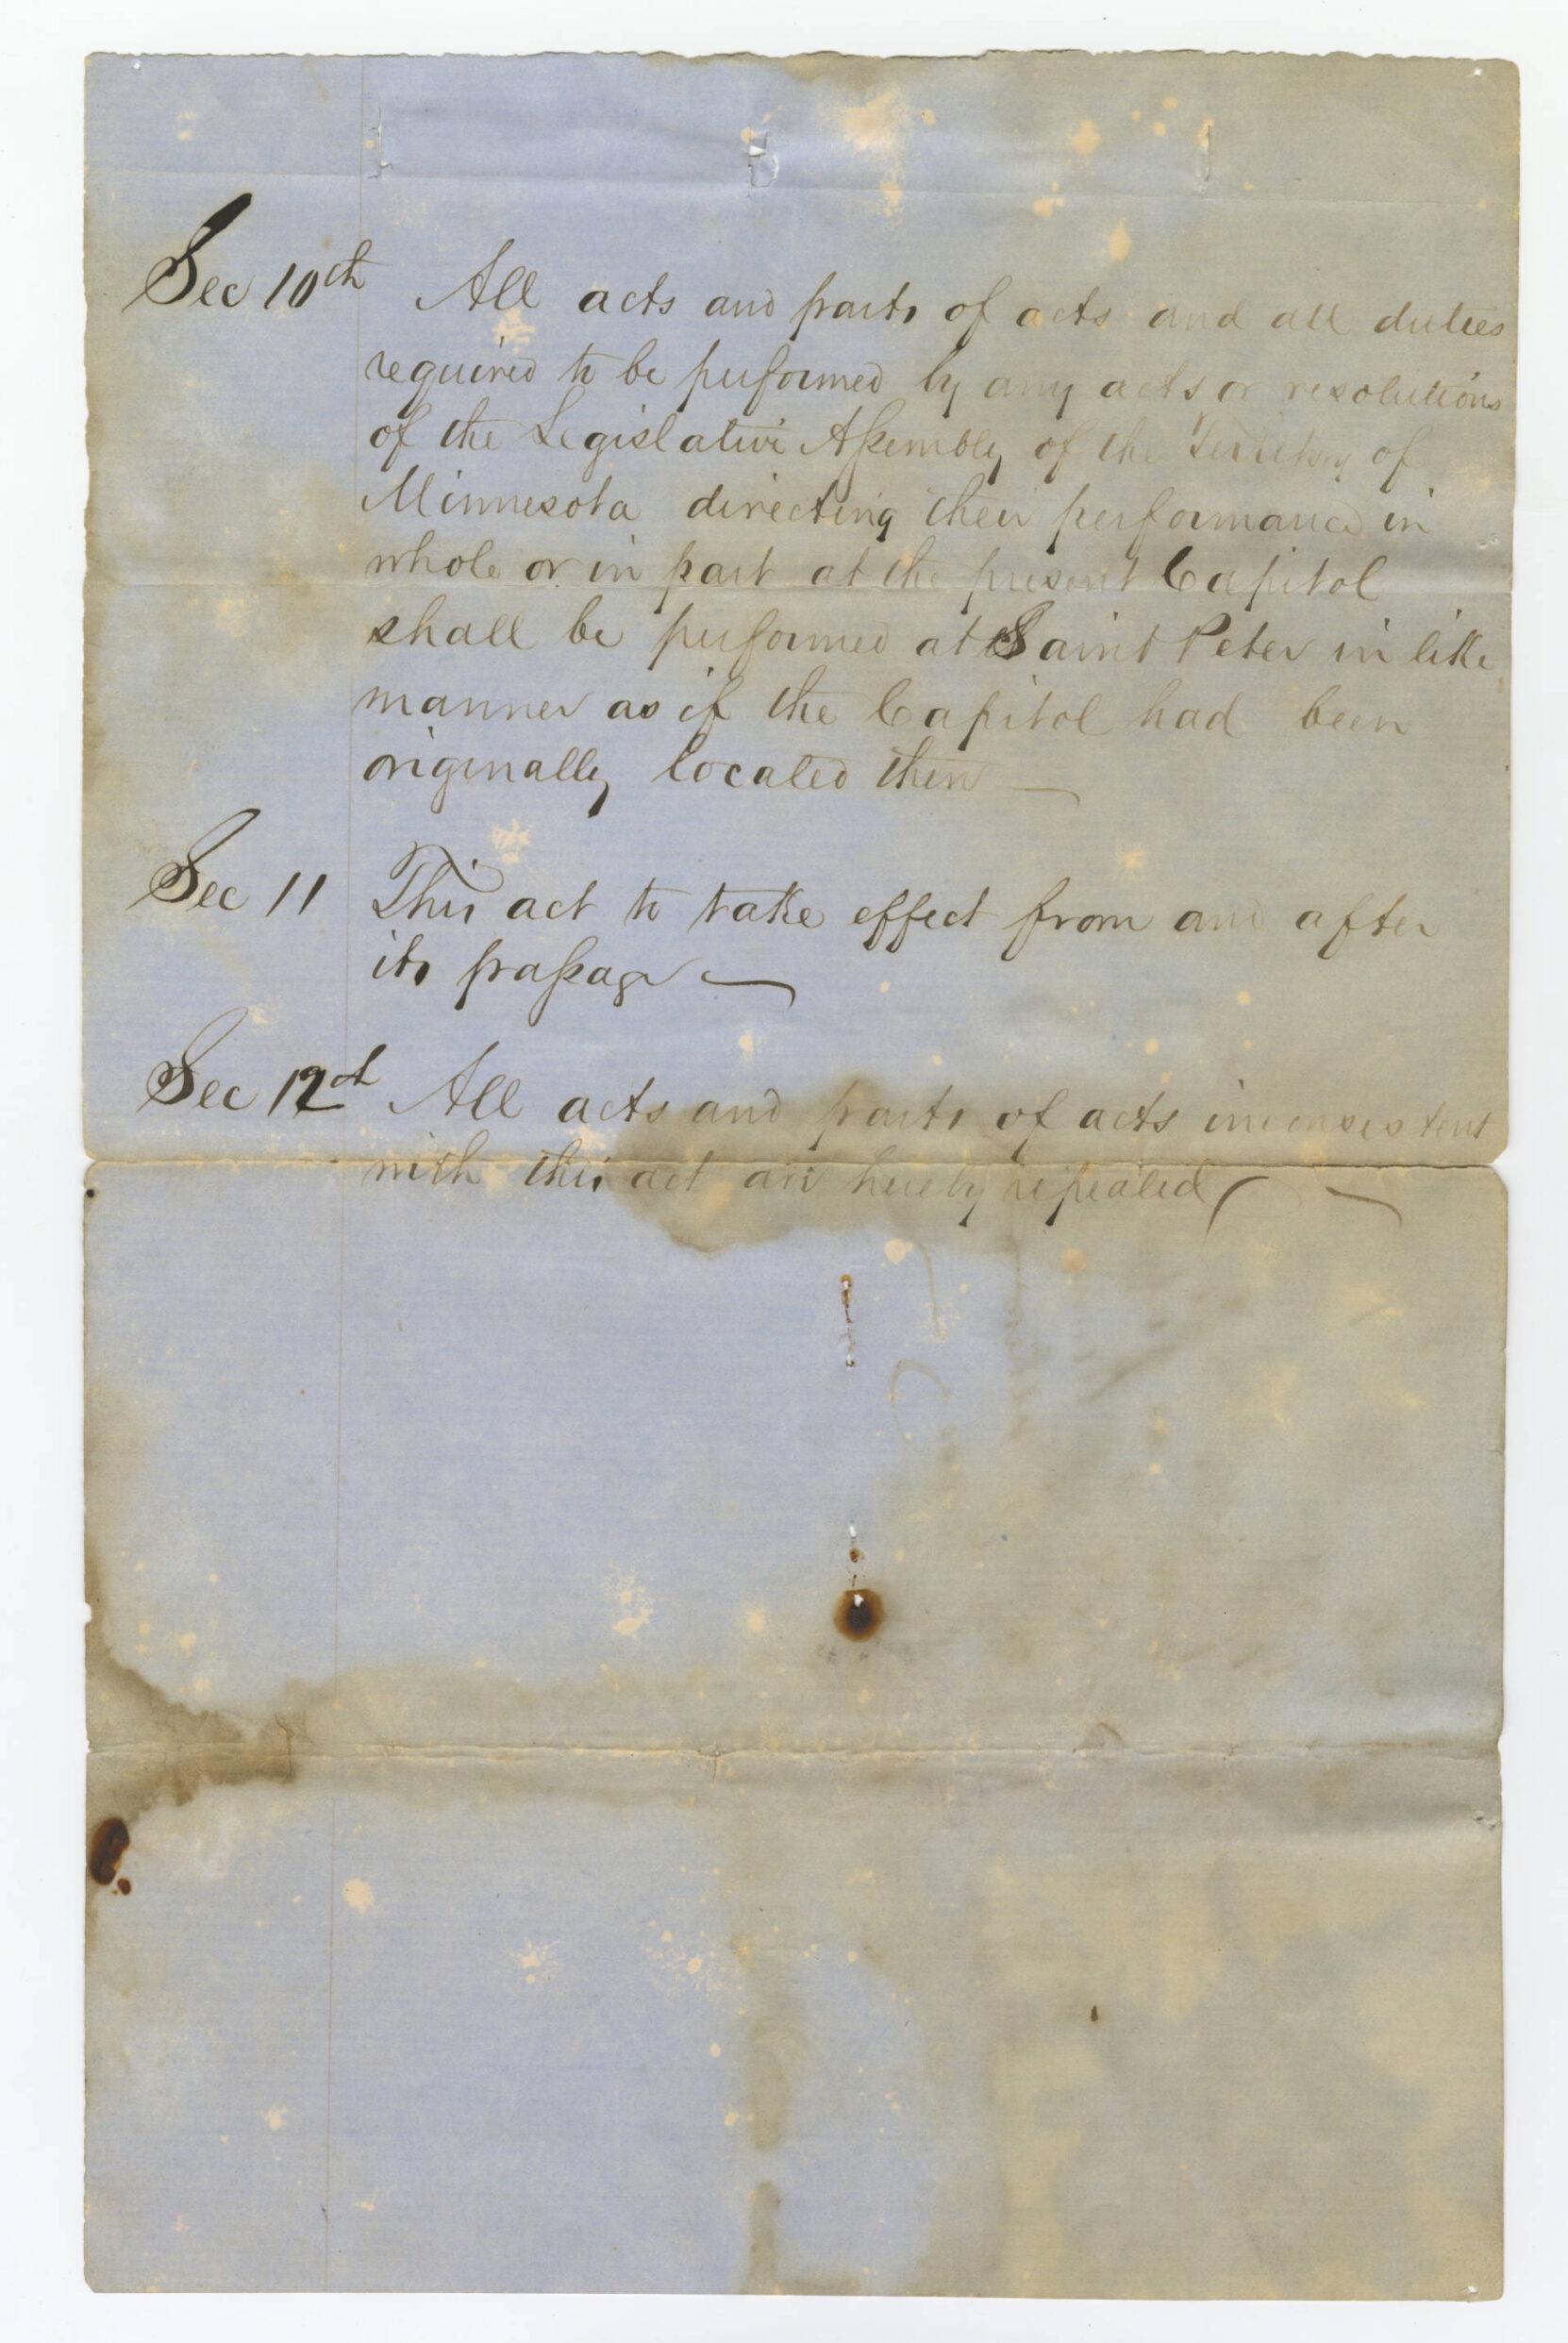 Sec 10th All acts and parts of acts and all duties
required to be performed by any acts or resolutions
of the Legislative Assembly of the Territory of
Minnesota directing their performance in
whole or in part at the present Capitol
shall be performed at Saint Peter in like
manner as if the Capitol had been
originally located there —
Sec 11 This act to take effect from and after
its passage —
Sec 12th All acts and parts of acts inconsistent
with this act are hereby repealed —